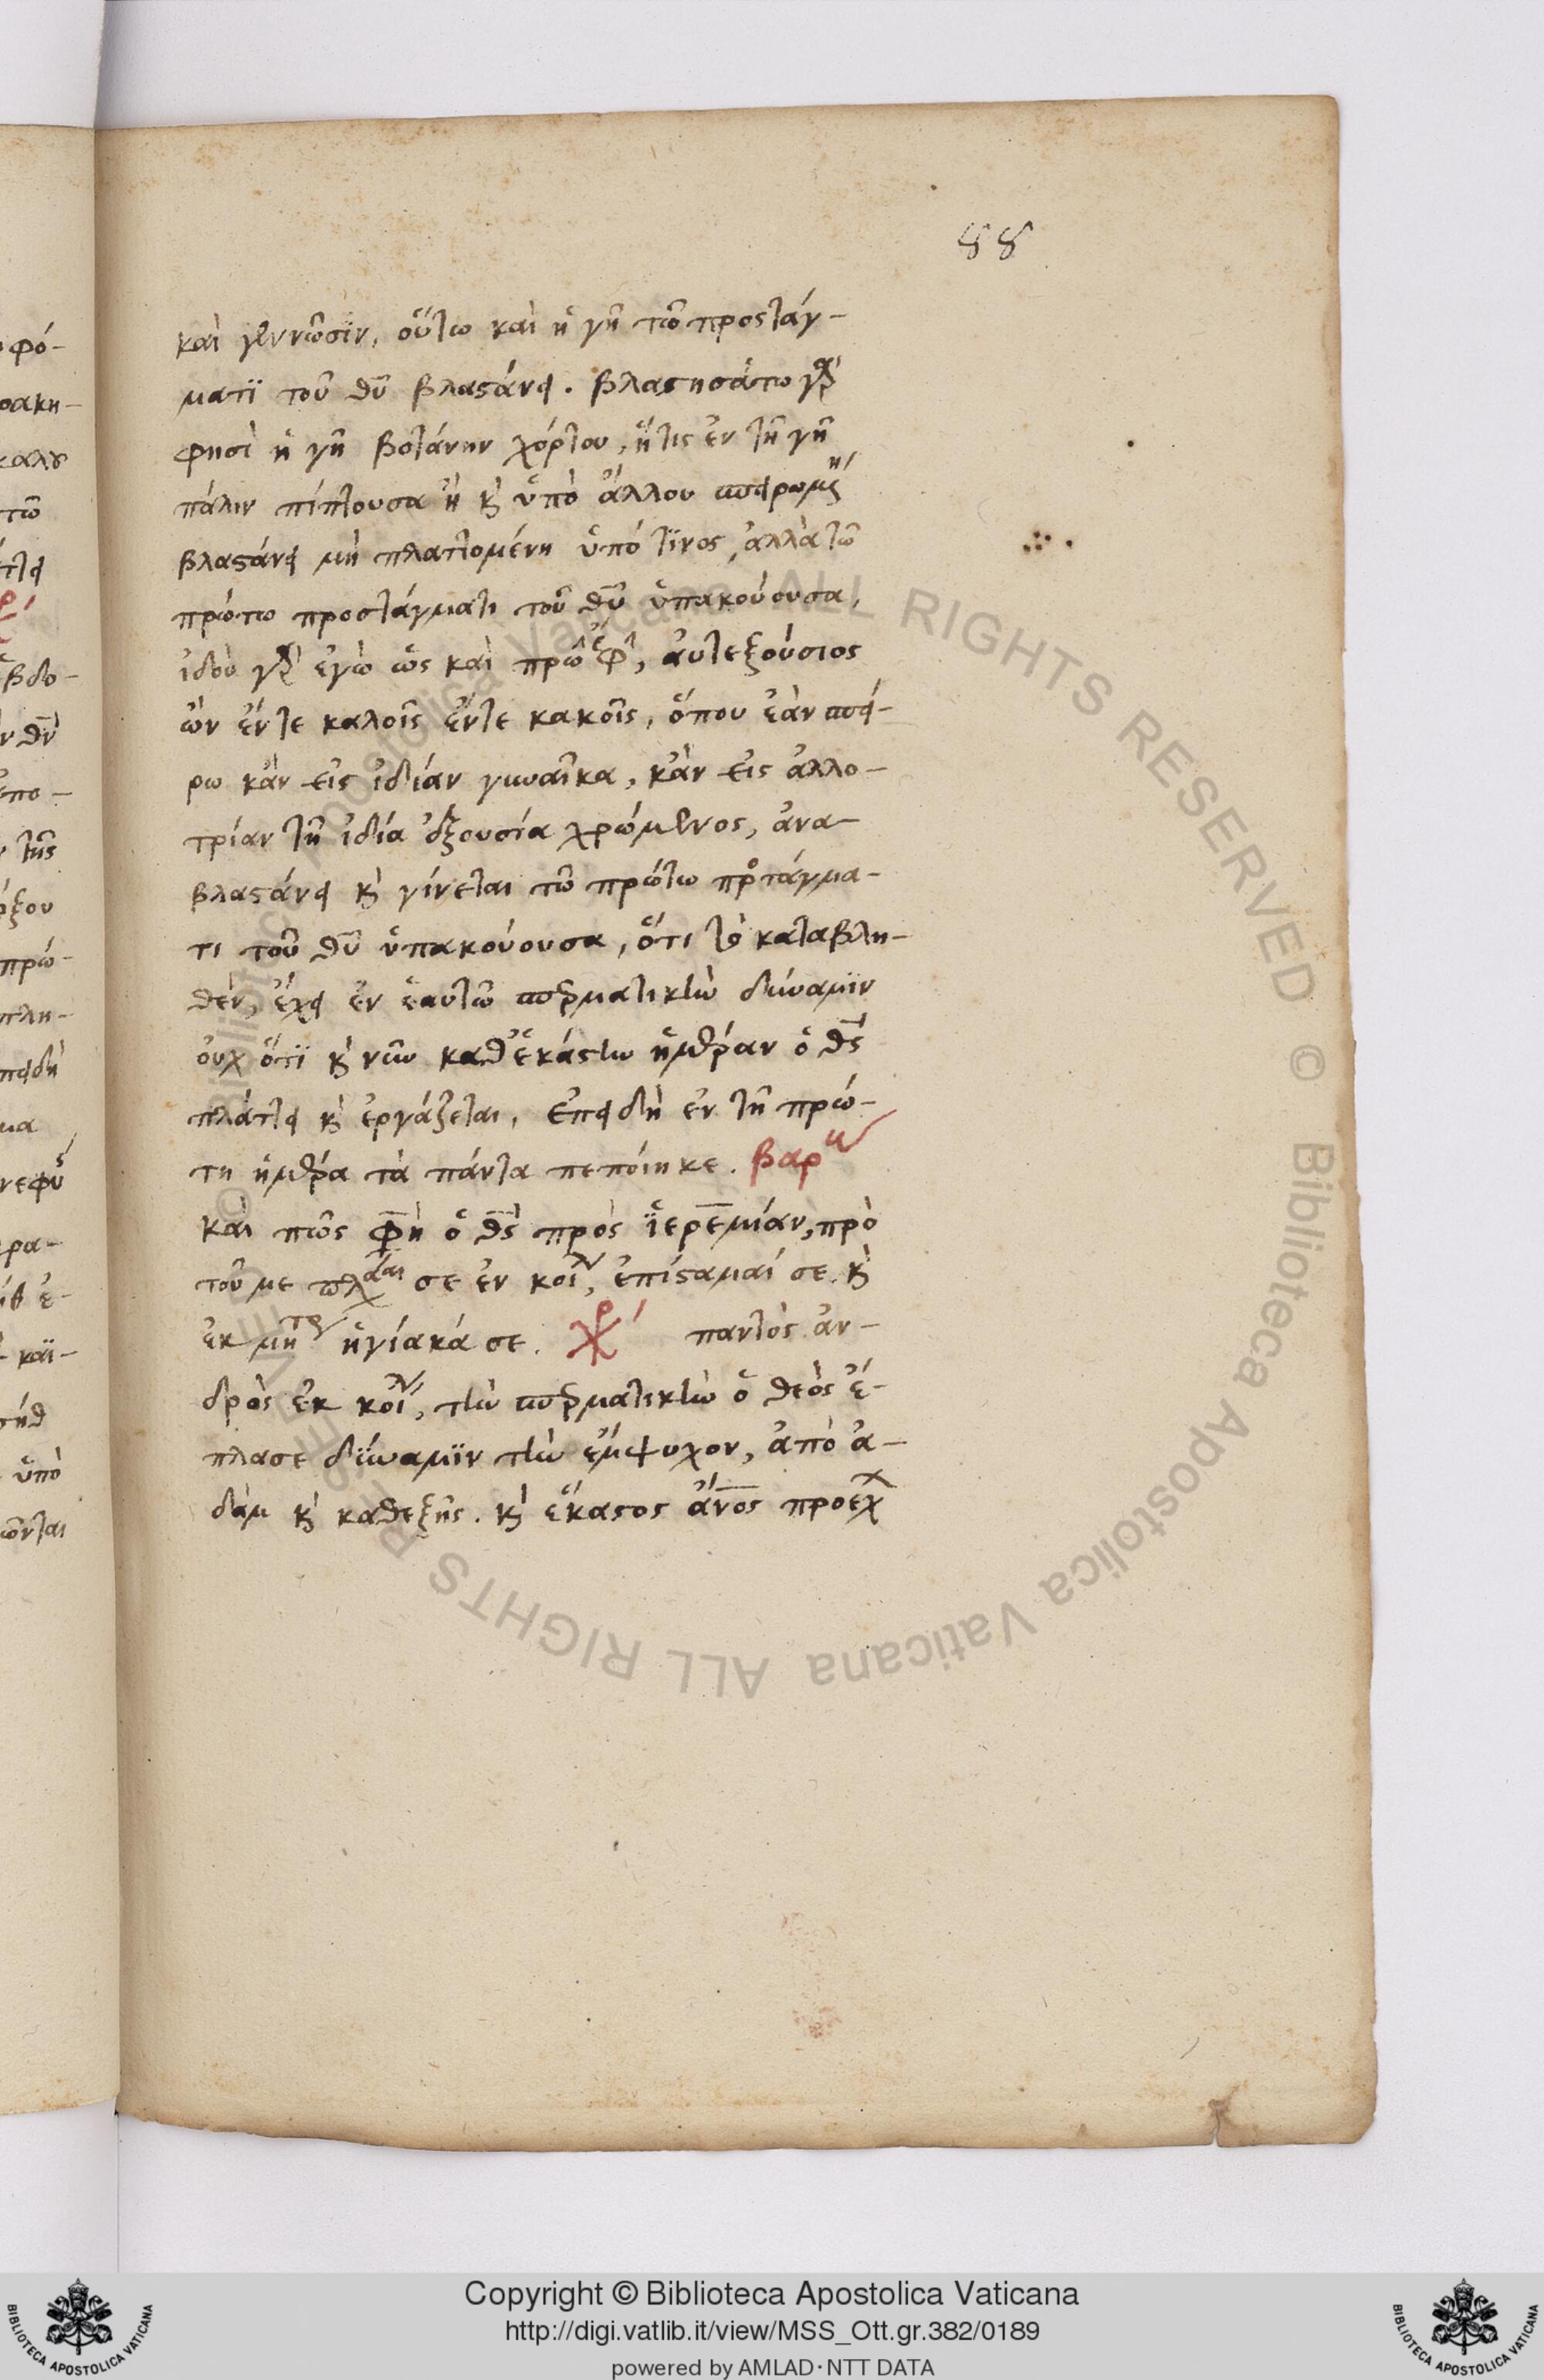 88
καὶ γεννῶσϊν, οὕτω καὶ ἡ γῆ τῶ προστάγ-
ματϊ τοῦ θυ βλαστάνει. βλαστησάτω γὰρ
φησὶ ἡ γῆ βοτάνην χόρτου, ἥτις ἐν τῆ γῆ
πάλιν πίπτουσα ἢ κ ὑπὸ ἄλλου σπειρωμένη
βλαστάνει μὴ πλαττομένη ὑπό τϊνος, ἀλλὰ τῶ
πρώτω προστάγματι τοῦ θυ ὑπακούουσα,
ἰδοὺ γὰρ ἐγὼ ὡς καὶ πρώ ἔφ, αὐτεξούσιος
ὢν ἔν τε καλοῖς ἔν τε κακοῖς, ὅπου ἐὰν σπεί-
ρω κἂν εἰς ἰδίαν γυναῖκα, κἂν εἰς ἀλλο-
τρίαν τῆ ἰδία ἐξουσία χρώμενος, ἀνα-
βλαστάνει κ γίνεται τῶ πρώτω προτάγμα-
τι τοῦ θυ ὑπακούουσα, ὅτι τὸ καταβλη-
θὲν, ἔχει ἐν ἑαυτῶ σπερματικὴν δύναμϊν
οὐχ ὅτϊ κ νῦν καθ ἑκάστην ἡμέραν ὁ θς
πλάττει κ ἐργάζεται, ἐπειδὴ ἐν τῆ πρώ-
τη ἡμέρα τὰ πάντα πεπόιηκε. βαρ
καὶ πῶς φη ὁ θς πρὸς ἱερεμίαν, πρὸ
τοῦ με πλάσαι σε ἐν κοιλ, ἐπίσταμαί σε. κ
ἐκ μητρ ἡγίακά σε. χρ παντὸς ἀν-
δρὸς ἐκ κοιλ, τὴν σπερματικὴν ὁ θεὸς ἔ-
πλασε δύναμϊν τὴν ἔμψυχον, ἀπὸ ἀ-
δὰμ κ καθεξῆς. κ ἕκαστος ἄνος προέχ
Copyright © Biblioteca Apostolica Vaticana
http://digi.vatlib.it/view/MSS_Ott.gr.382/0189
powered by AMLAD·NTT DATA
BIBLIOTECA APOSTOLICA VATICANA
BIBLIOTECA APOSTOLICA VATICANA
© Biblioteca Apostolica Vaticana ALL RIGHTS RESERVED © Biblioteca Apostolica Vaticana ALL RIGHTS RESERVED